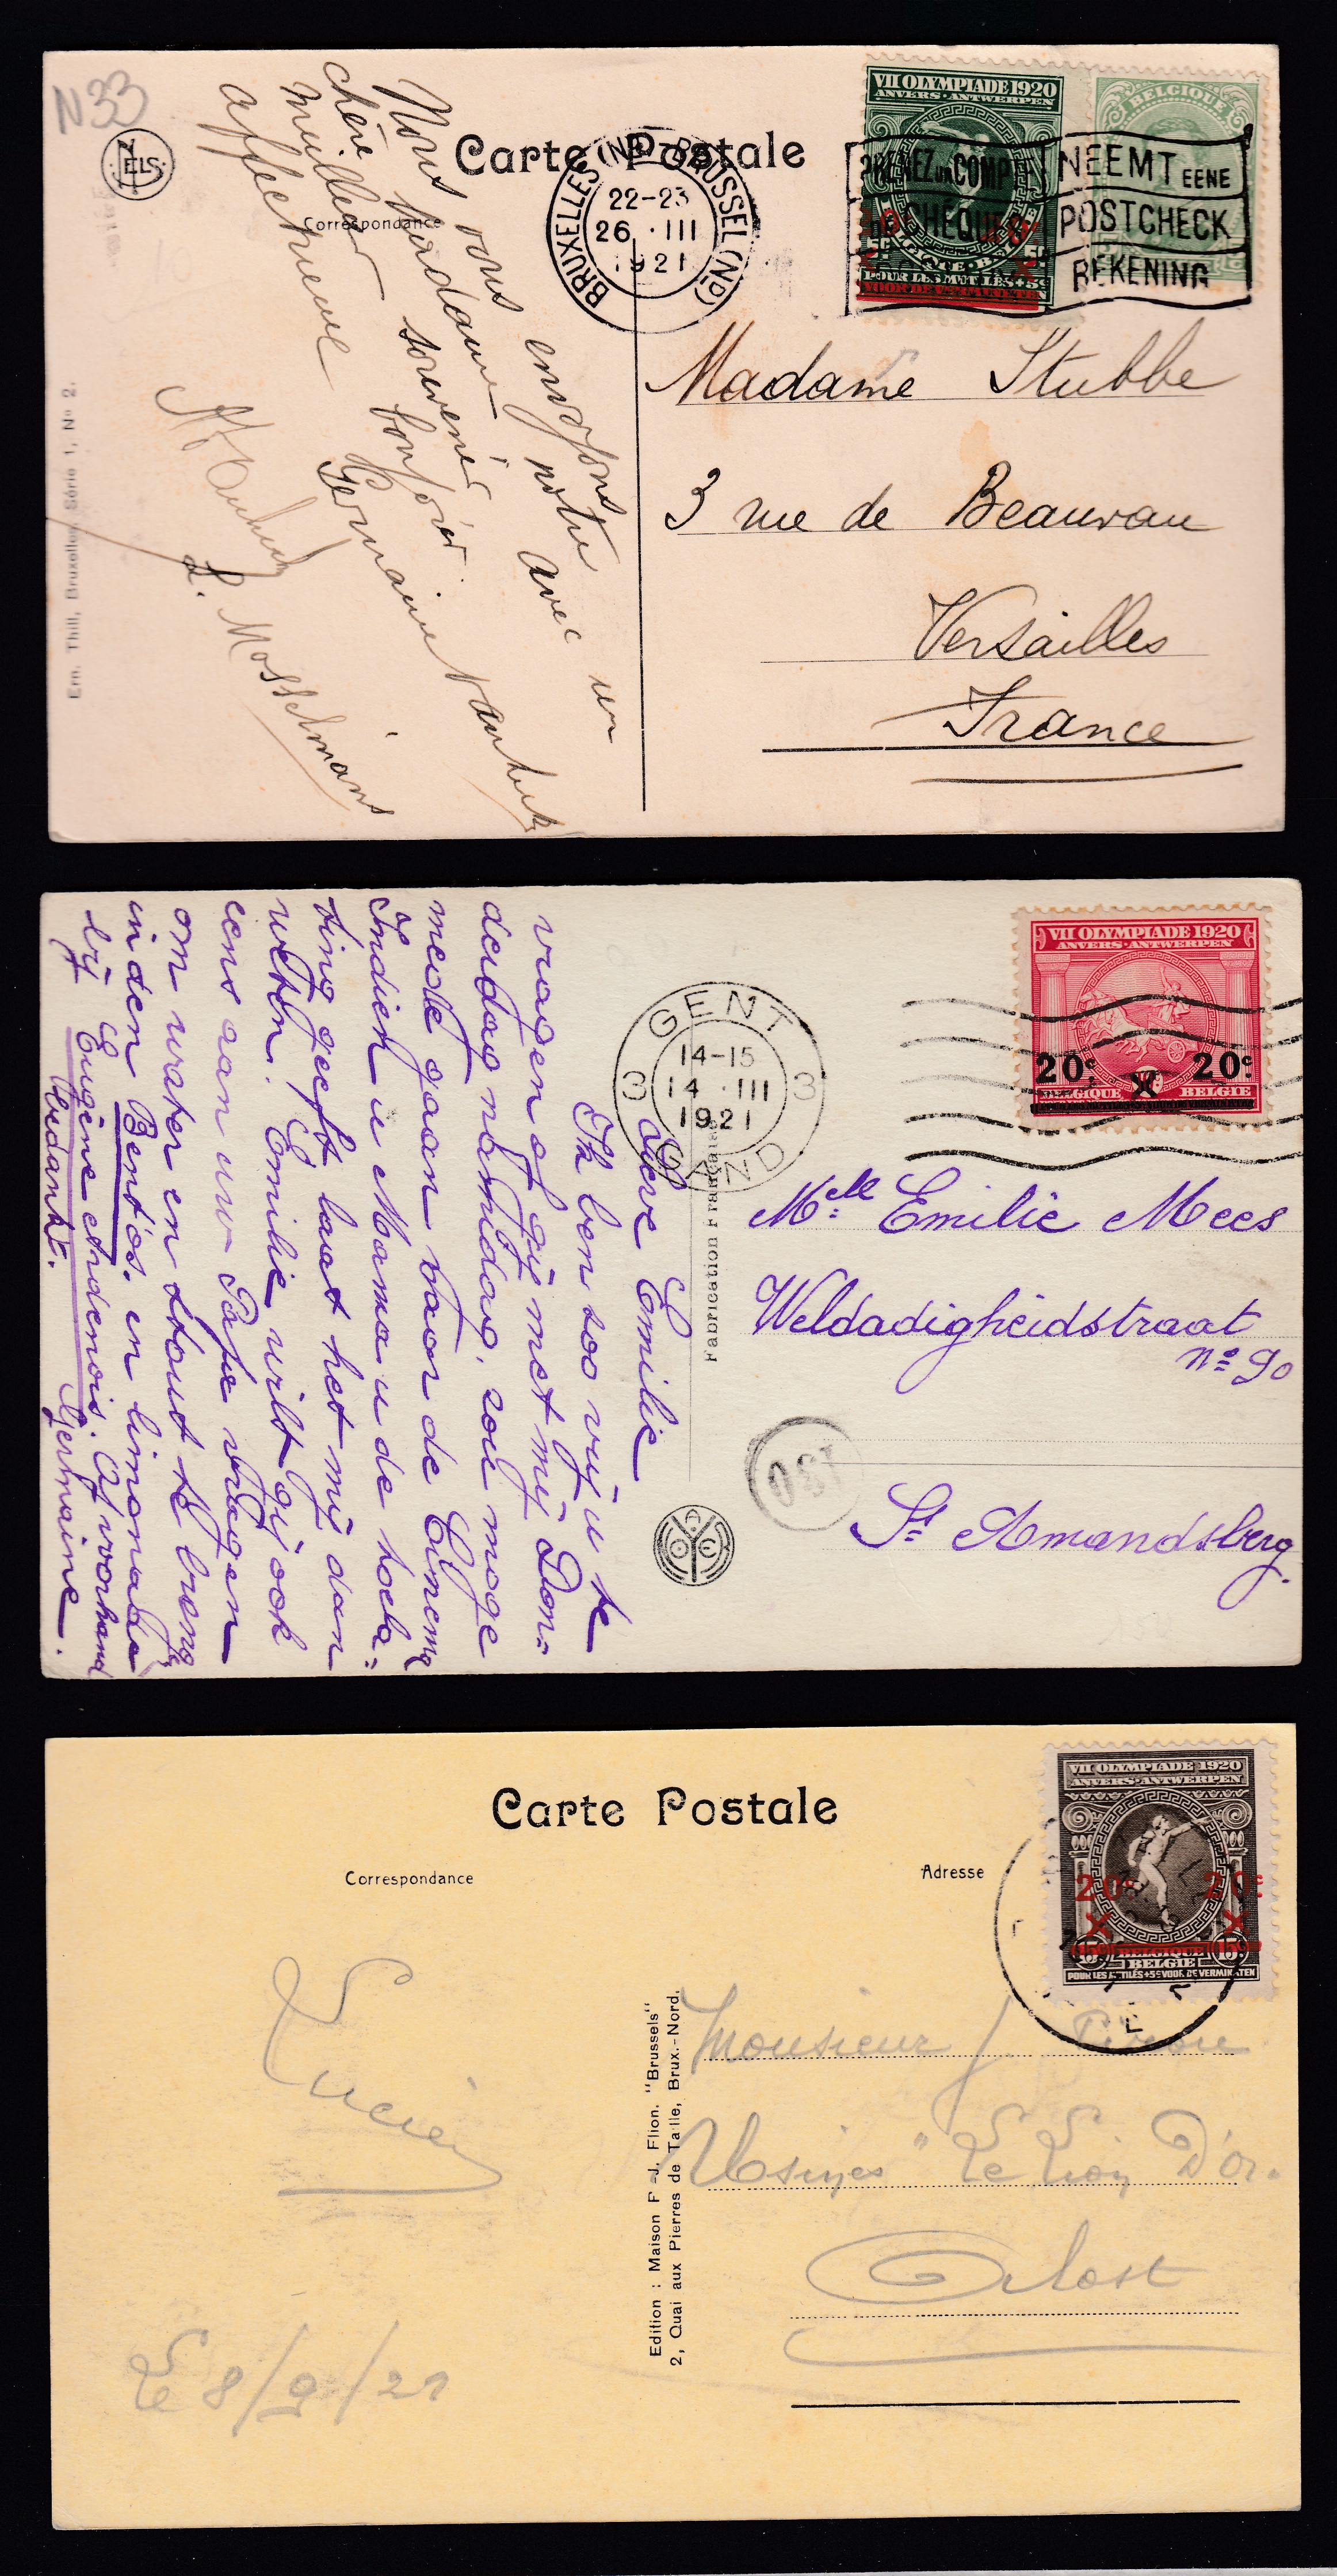 N33
NELS
Carte Postale
Correspondance
Nous vous envoyons
chère Madame notre
meilleur souvenir avec un
affectueux bonjour.
Germaine
L. Mosselmans
Ern. Thill, Bruxelles, Série 1, Nº 2.
BRUXELLES (Nd) BRUSSEL (Nd)
22-23
26 ·III
1921
VII OLYMPIADE 1920
ANVERS·ANTWERPEN
BELGIQUE
PRENEZ UN COMPTE
CHÈQUES
NEEMT EENE
POSTCHECK
REKENING
Madame Stubbe
3 rue de Beauvau
Versailles
France
VII OLYMPIADE 1920
ANVERS·ANTWERPEN
20c 20c
BELGIQUE BELGIE
GENT
14-15
3 14 ·III 3
1921
GAND
Lieve Emilie
Ik ben zoo vrij u te
vragen of gij met mij Don=
derdag namiddag, zou moge
mede gaan naar de Cinema
Indien u Mama u de toela=
ting geeft laat het mij dan
weten. Emilie wilt gij ook
eens aan uw Pape vragen
om water en stout te breng
in den Bentos. en limonade
bij Eugène
Op voorhand
bedankt.
Germaine.
Fabrication Française
Melle Emilie Mees
Weldadigheidstraat
nº 90
130
St Amandsberg.
Carte Postale
Correspondance
Adresse
VII OLYMPIADE 1920
ANVERS·ANTWERPEN
20c 20c
15c BELGIQUE 15c
BELGIE
POUR LES MUTILÉS+5c VOOR DE VERMINKTEN
Lucien
Le 8/9/21
Edition : Maison F.-J. Flion. "Brussels"
2, Quai aux Pierres de Taille, Brux.-Nord.
Monsieur J.
Usines "Le Lion D'or.
Alost